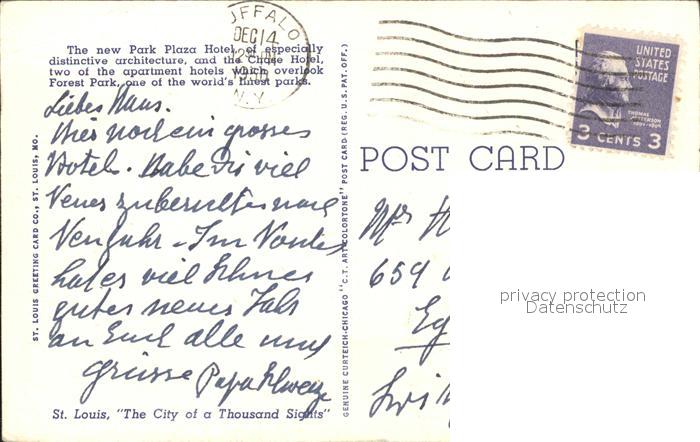 The new Park Plaza Hotel, of especially
distinctive architecture, and the Chase Hotel,
two of the apartment hotels which overlook
Forest Park, one of the world's finest parks.
BUFFALO
DEC 14
N.Y.
UNITED
STATES
POSTAGE
THOMAS
JEFFERSON
1801-1809
3 CENTS 3
POST CARD
Liebes Hans.
Hier noch ein grosses
Hotel. Habe Dir viel
Neues zu berichten nach
Neujahr - Im Norden
hat es viel Schnee
gutes neues Jahr
an Euch alle und
Grüsse Papa
St. Louis, "The City of a Thousand Sights"
ST. LOUIS GREETING CARD CO., ST. LOUIS, MO.
GENUINE CURTEICH-CHICAGO "C.T. ART-COLORTONE" POST CARD (REG. U.S. PAT. OFF.)
Mr. H
659
Eg
privacy protection
Datenschutz